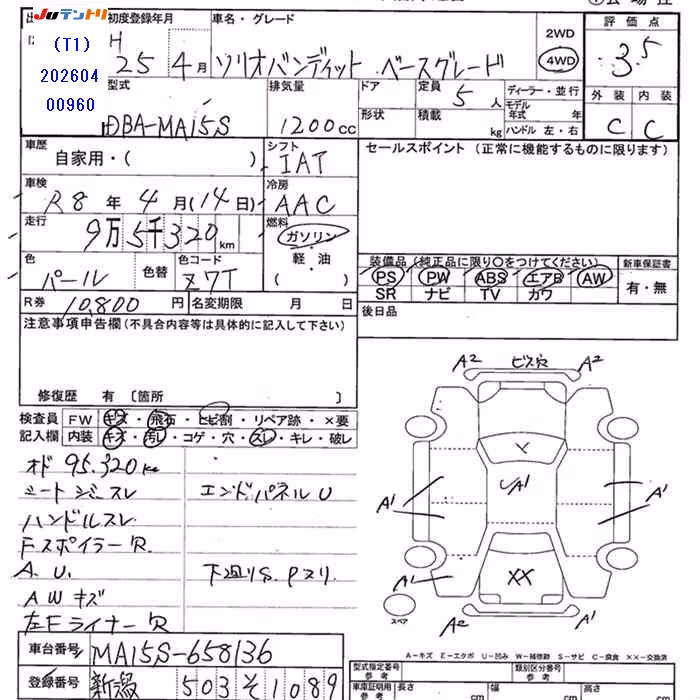 Juテントリ 初度登録年月 車名・グレード 評価点
(T1)
202604
00960
H 25 4月 ソリオバンディット ベースグレード 2WD 4WD 3.5
型式 排気量 ドア 定員 5人 ディーラー・並行 外装 内装
DBA-MA15S 1200cc 形状 積載 kg モデル年式 年 ハンドル 左・右 C C
車歴 シフト セールスポイント (正常に機能するものに限ります)
自家用・( ) IAT
車検 冷房
R8年4月(14日) AAC
走行 燃料
9万5千320km ガソリン
色 色替 色コード 軽・油 装備品 (純正品に限り○をつけてください) 新車保証書
パール Z7T ( ) PS PW ABS エアB AW 有・無
SR ナビ TV カワ
R券 10,800円 名変期限 月 日 後日品
注意事項申告欄(不具合内容等は具体的に記入して下さい)
修復歴 有 〔箇所 〕
検査員 FW キズ・飛石・ヒビ割・リペア跡・×要
記入欄 内装 キズ・汚レ・コゲ・穴・スレ・キレ・破レ
オド 95.320km
シートシミスレ エンドパネルU
ハンドルスレ
FスポイラーR
A.U. 下廻りS.Pヌリ
AWキズ
左FライナーR
車台番号 MA15S-658136
登録番号 新潟 503 そ 1089
A2 ビス穴 A2
A1 A1 A1
A1 XX
スペア A2 A2
A-キズ E-エクボ U-凹み W-補修跡 S-サビ C-腐食 XX-交換済
型式指定番号 参考 類別区分番号 参考
車庫証明用 参考 長さ cm 幅 cm 高さ cm